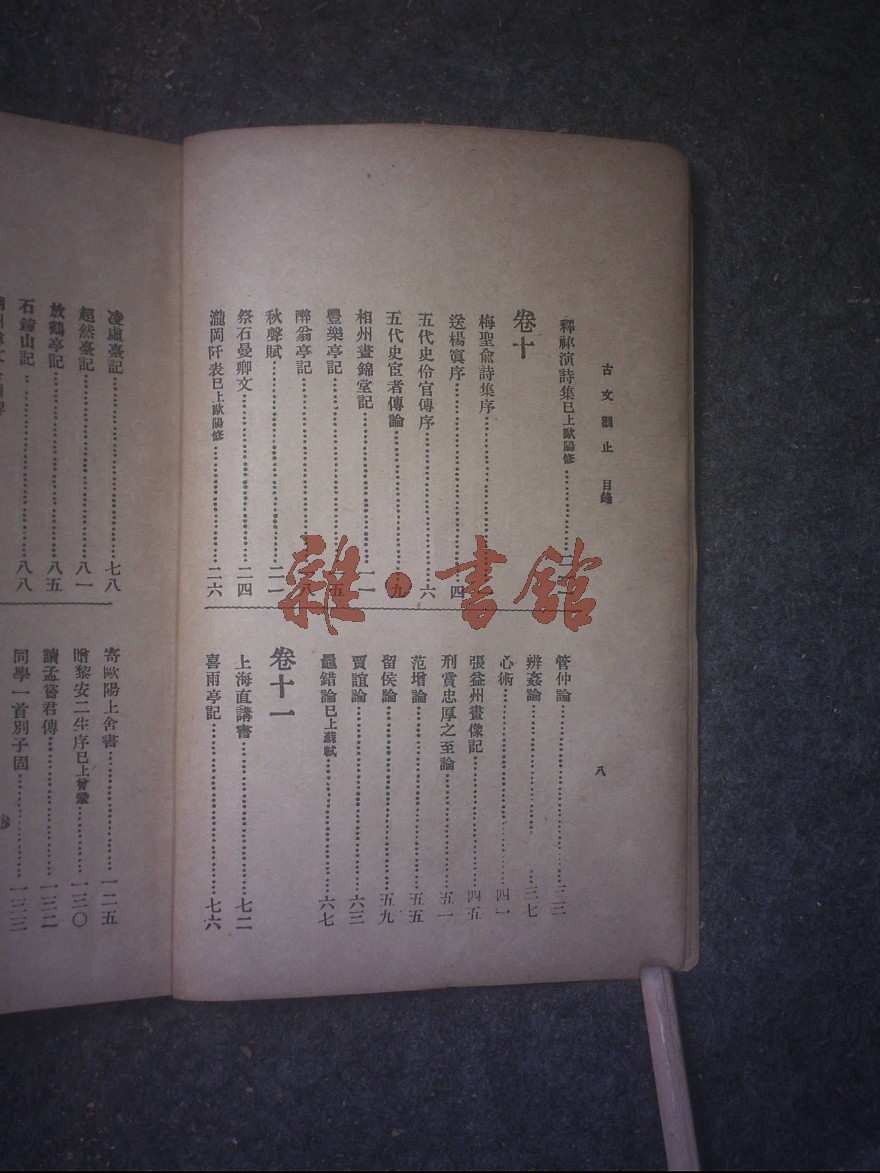 古文觀止 目錄
八
釋祕演詩集已上歐陽修
卷十
梅聖兪詩集序
送楊寘序 四
五代史伶官傳序 六
五代史宦者傳論 九
相州晝錦堂記
豐樂亭記
醉翁亭記
秋聲賦
祭石曼卿文 二四
瀧岡阡表已上歐陽修 二六
管仲論
辨姦論 三七
心術 四一
張益州畫像記 四五
刑賞忠厚之至論 五一
范增論 五五
留侯論 五九
賈誼論 六三
鼂錯論已上蘇軾 六七
卷十一
上海直講書 七二
喜雨亭記 七六
凌虛臺記 七八
超然臺記 八一
放鶴亭記 八五
石鐘山記 八八
寄歐陽上舍書 一二五
贈黎安二生序已上曾鞏 一三〇
讀孟嘗君傳 一三二
同學一首別子固 一三三
雜·書館